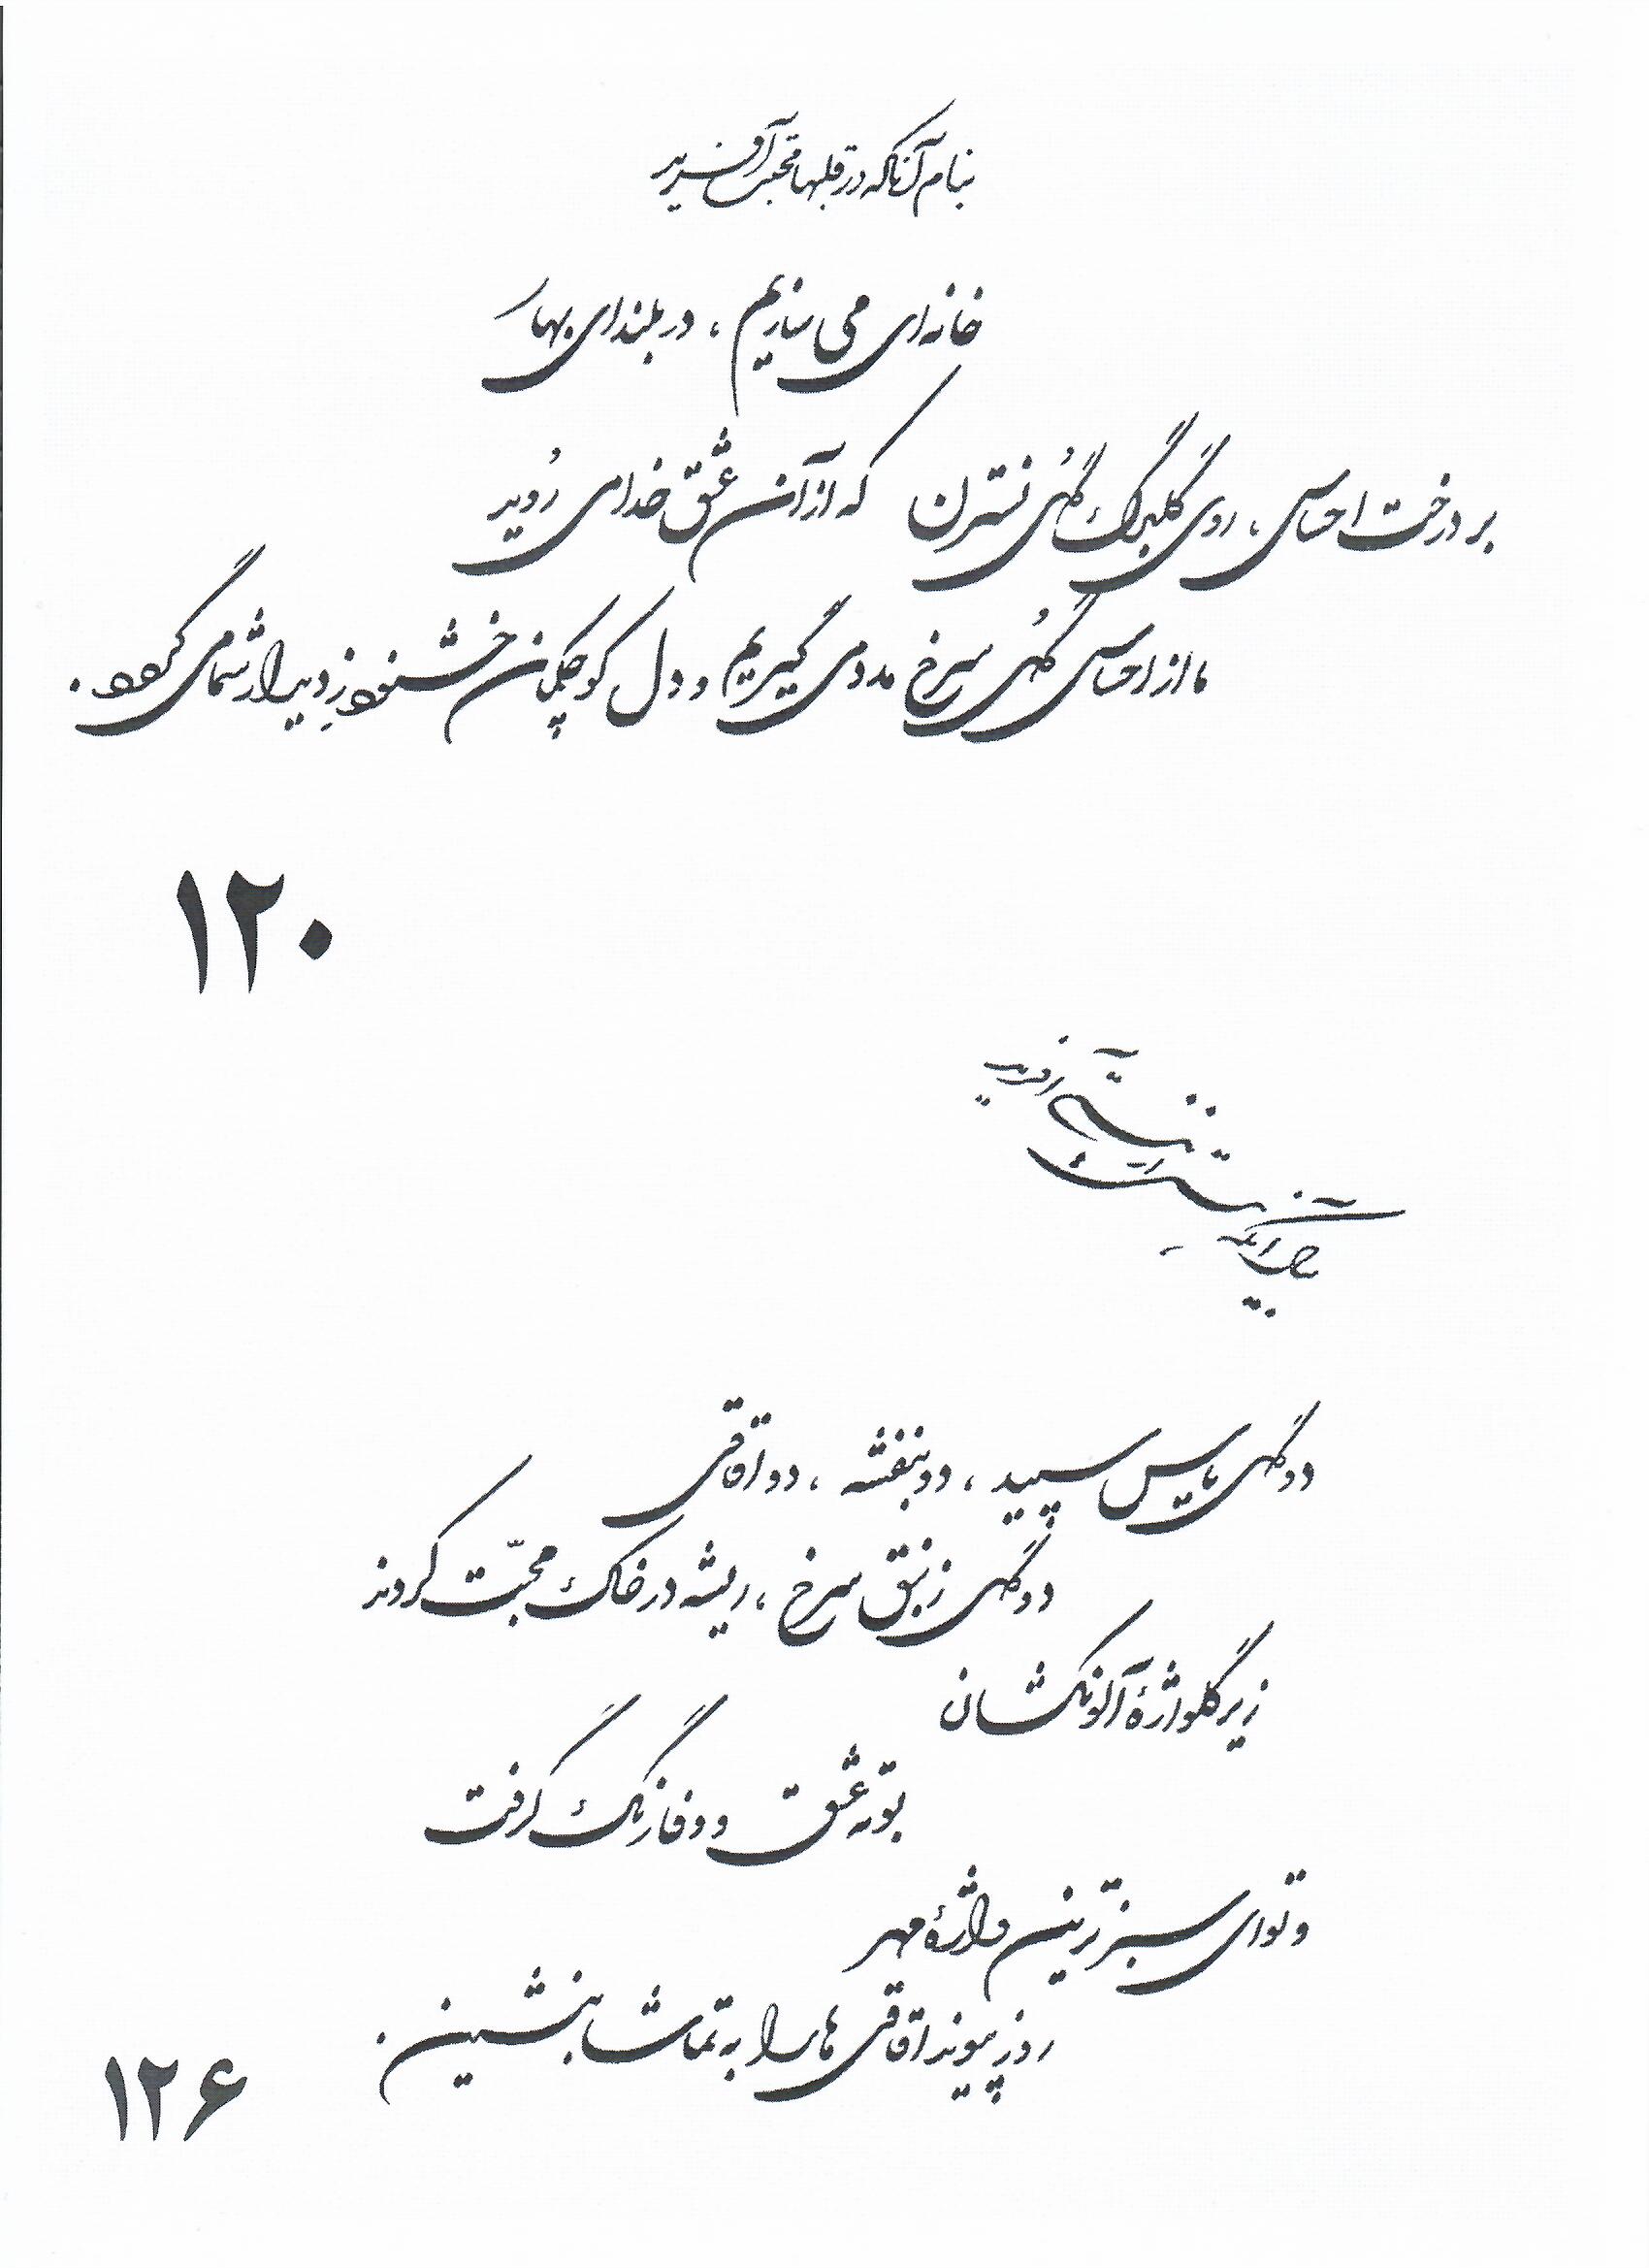 بنام آنکه در قلبها محبت آفرید
خانه ای می سازیم ، در بلندای بهار
بر درخت احساس ، روی گلبرگ گل نسترن که از آن عشق خدا می روید
ما از احساس گل سرخ مدد می گیریم و دل کوچکمان خشنود ز دیدار شما می گردد .
۱۲۰
آفرید
دو گل یاس سپید ، دو بنفشه ، دو اقاقی
دو گل زنبق سرخ ، ریشه در خاک محبّت کردند
زیر گلواژهٔ آلونکشان
بوته عشق و وفا رنگ گرفت
و تو ای سبزترین واژهٔ مهر
روز پیوند اقاقی ها را به تماشا بنشین .
۱۲۶